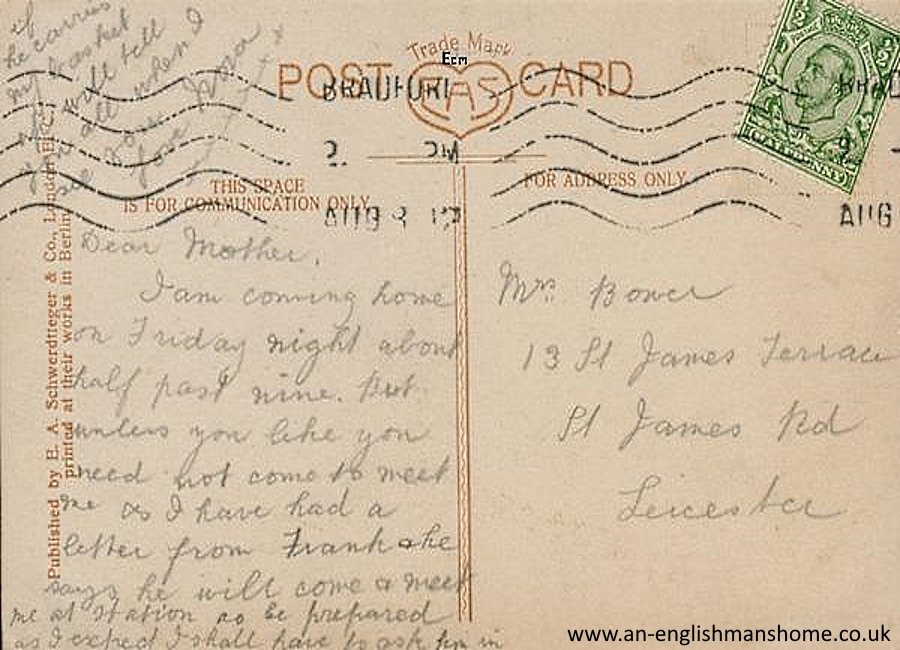 if
he carries
my basket
will tell
you all when I
see you
love
POST CARD
Trade Mark
EAS
BRADFORD
2 PM
AUG 8 12
AUG
HALFPENNY
THIS SPACE
IS FOR COMMUNICATION ONLY
FOR ADDRESS ONLY
Published by E. A. Schwerdtfeger & Co., London E.C.
printed at their works in Berlin
Dear Mother,
I am coming home
on Friday night about
half past nine. But
unless you like you
need not come to meet
me as I have had a
letter from Frank & he
says he will come & meet
me at station so be prepared
as I expect I shall have to ask him in
Mrs Bower
13 St James Terrace
St James Rd
Leicester
www.an-englishmanshome.co.uk